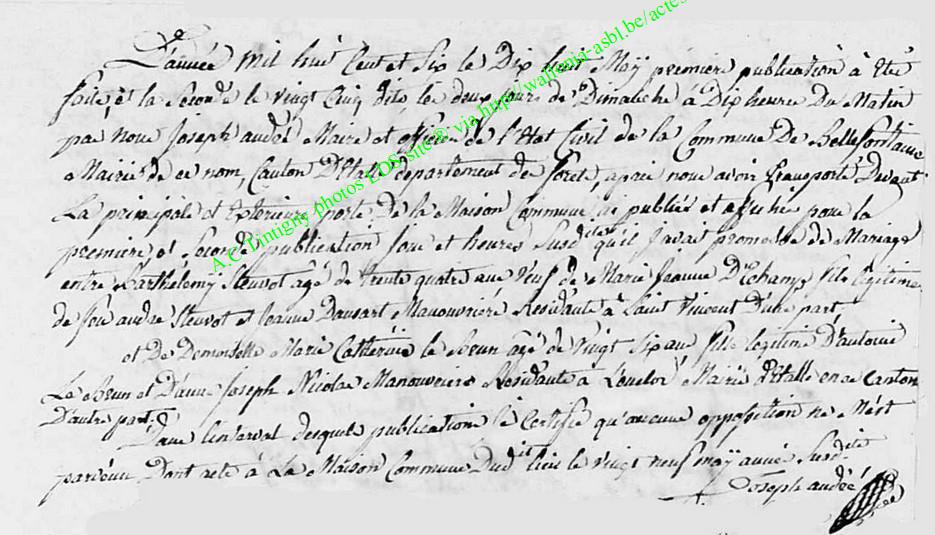 L'année Mil huit Cent et Six le Dix huit Maÿ première publication à Eté
faite, et la Seconde le vingt Cinq dito les deux jours de Dimanche à Dix heures Du Matin
par nous Joseph andré Maire et officier de l'Etat Civil de la Commune De Bellefontaine
Mairie de ce nom, Canton D'Etalle département de forêts, après nous avoir transporté Devant
La principale et Exterieure porte De la Maison Commune publié et affiché pour la
première et Seconde publication jour et heures Susdites qu'il Javait promesse de Mariage
entre Barthelemy agé de trente quatre ans Veuf de Marie Jeanne D'Echamps fils légitime
de feu andre et Jeanne Manouvrière Residante à Saint Vincent D'une part,
et De Demoiselle Marie Catherine le Brun agé de Vingt Six an fille legitime D'antoine
Le Brun et D'anne Joseph Nicolas Manouvriers Residante à Mairie d'Etalle en ce Canton
D'autre part.
Dans l'interval desquels publications je Certifie qu'aucune opposition ne M'est
parvenu, Dont acte à La Maison Commune Dudit lieu le Vingt neuf maÿ année Susdite
Joseph andré
A.C. Tintigny photos EOS site®: via http://wallonia-asbl.be/actes